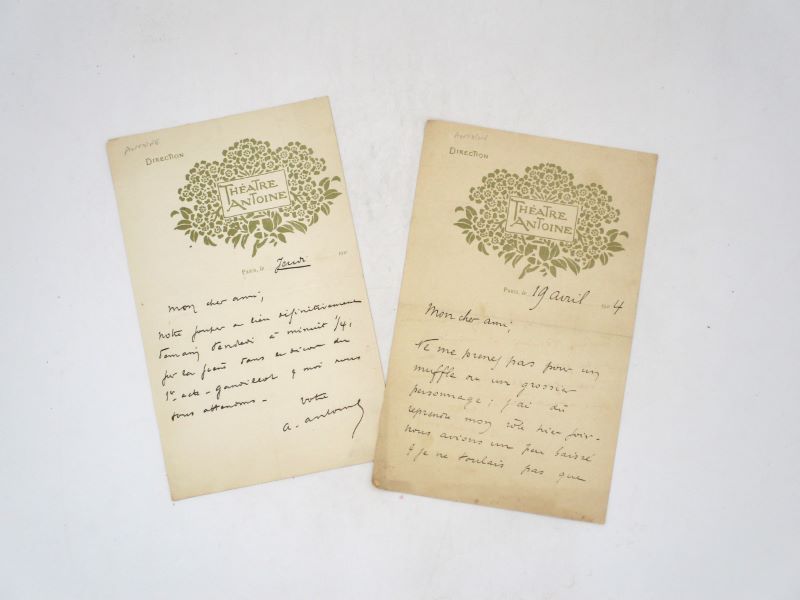 ANTOINE
DIRECTION
THÉATRE
ANTOINE
PARIS, le Jeudi 190
Mon cher ami,
notre souper a lieu définitivement
demain Vendredi à minuit 1/4,
sur la scène dans le décor du
1er acte - Gandillot & moi nous
vous attendons -
votre
A. Antoine
ANTOINE
DIRECTION
THÉATRE
ANTOINE
PARIS, le 19 avril 1904
Mon cher ami,
Ne me prenez pas pour un
muffle ou un grossier
personnage ; j'ai dû
reprendre mon rôle hier soir -
nous avions un peu baissé
& je ne voulais pas que